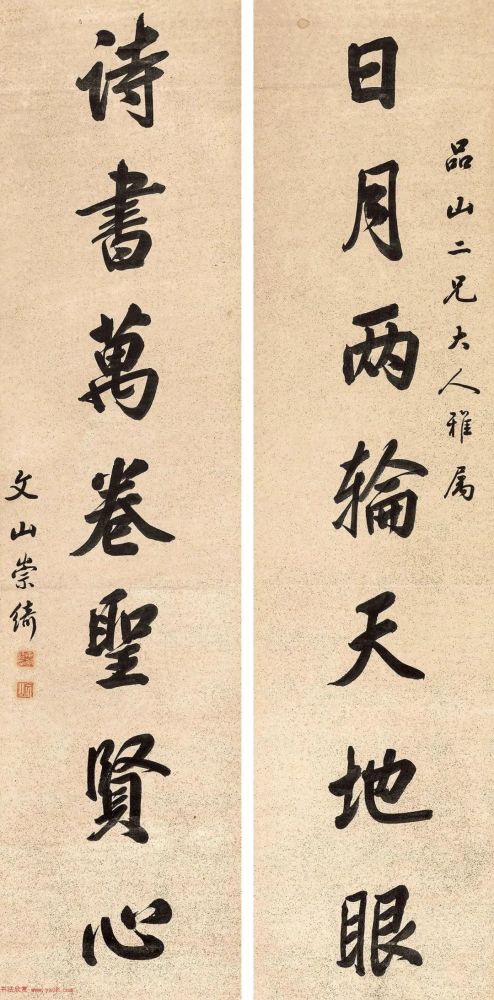 品山二兄大人雅属
日月两轮天地眼
诗書萬卷聖賢心
文山崇綺
书法欣赏 www.yac8.com